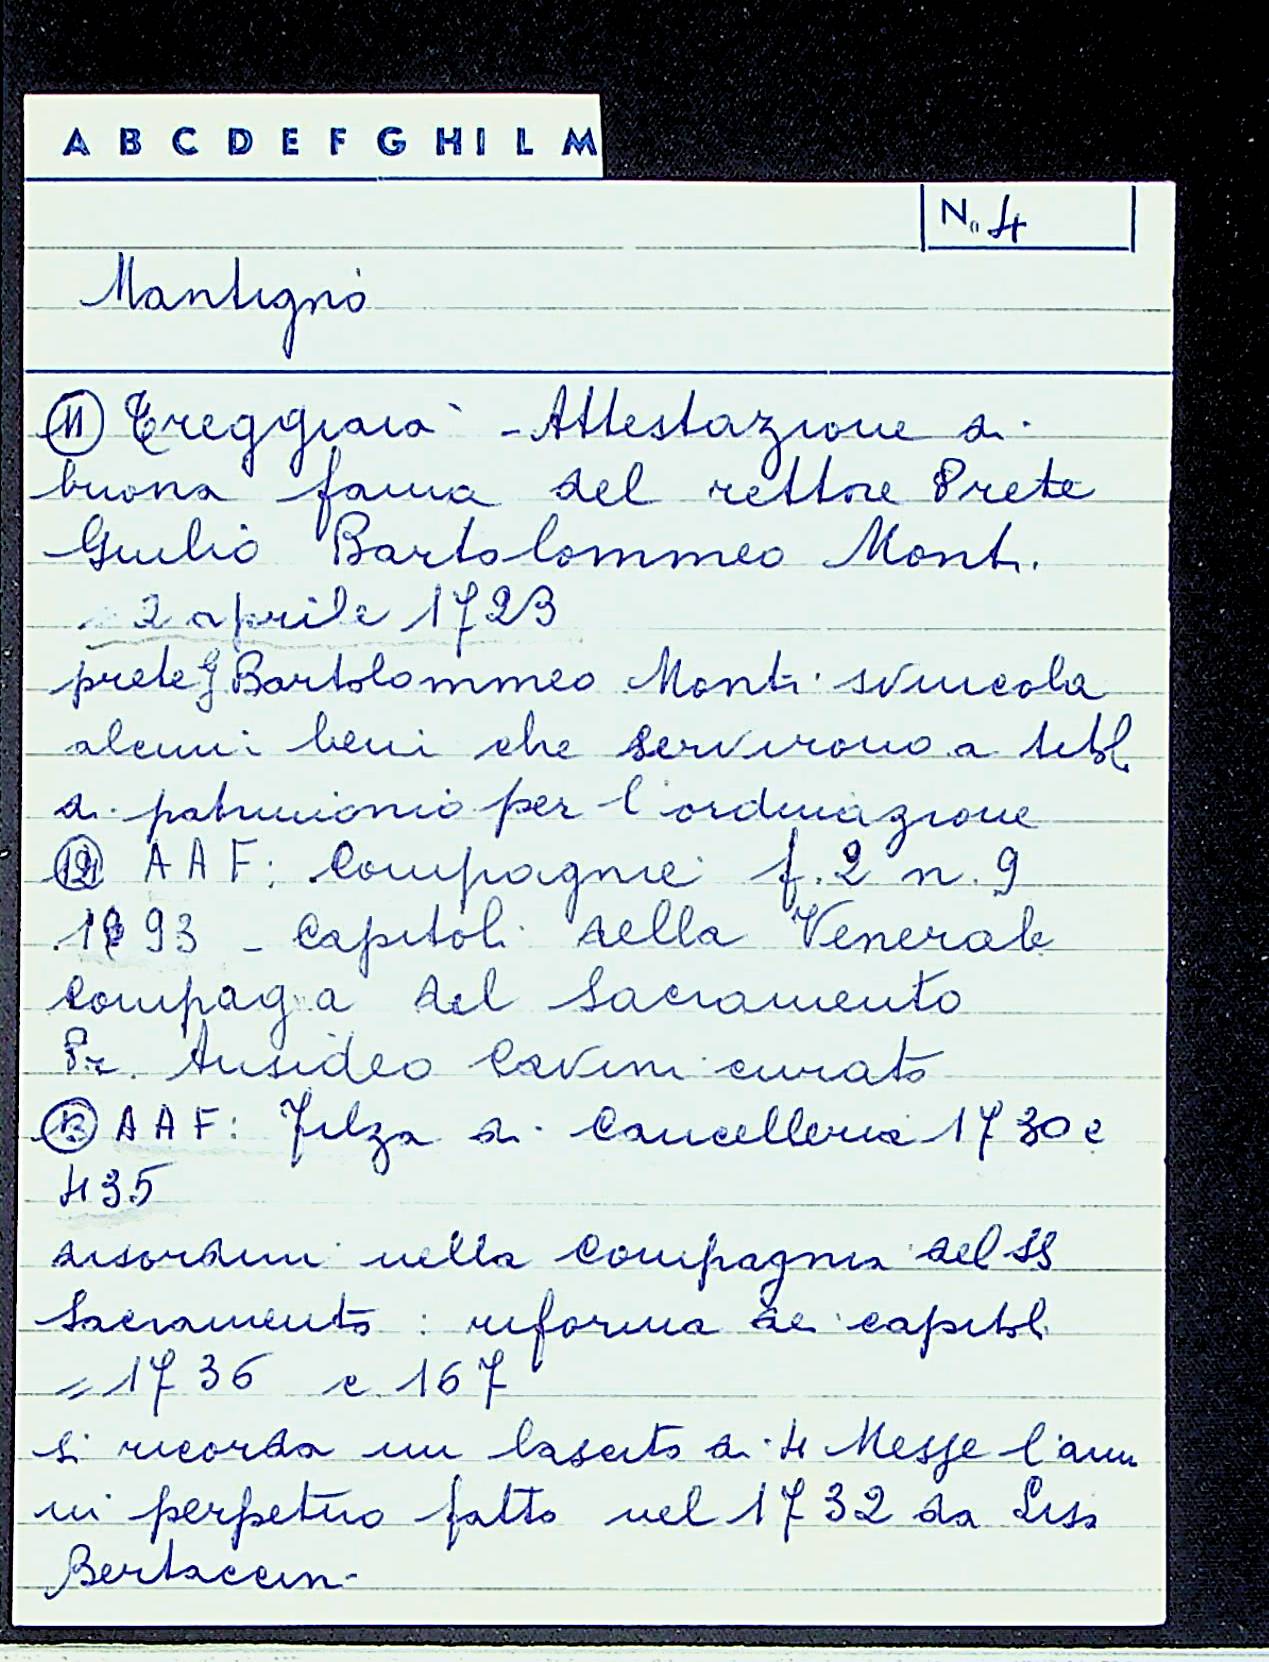 A B C D E F G H I L M
N. 4
Mantigno
11 Treggiaia - Attestazione di
buona fama del rettore Prete
Giulio Bartolommeo Monti
2 aprile 1723
prete G Bartolommeo Monti svincola
alcuni beni che servirono a titol
di patrimonio per l'ordinazione
12 AAF: Compagnie f. 2 n. 9
93 - Capitoli della Venerab
compag a del Sacramento
Pr. Ansideo Cavini curato
13 AAF: Filza di Cancelleria 1730 c
435
disordini nella Compagnia del SS
Sacramento: riforma dei capitoli
= 1736 c. 167
si ricorda un lascito di 4 Messe l'ann
in perpetuo fatto nel 1732 da Lisa
Bertaccini